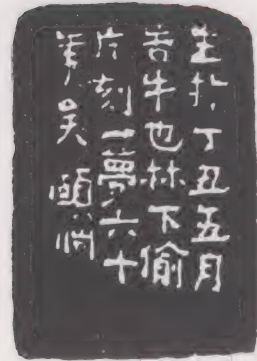 生扵丁丑五月
吾牛也林下偷
片刻一夢六十
年吴